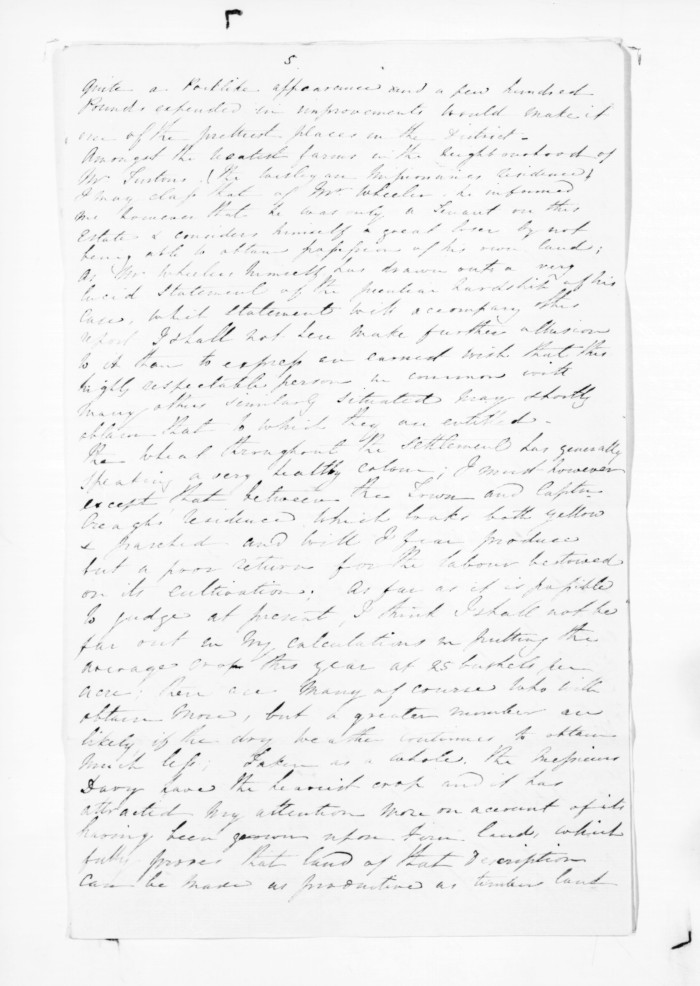 5
Quite a Parklike appearance and a few hundred
Pounds expended in improvements would make it
one of the prettiest places in the District -
Amongst the neatest farms in the neighbourhood of
Mr Turtons (the Wesleyan Missionaries residence)
I may class that of Mr Wheeler. he informed
me however that he was only a Tenant on this
Estate & considers himself a great loser by not
being able to obtain possession of his own land;
As Mr Wheeler himself has drawn out a very
lucid Statement of the peculiar hardship of his
Case, which statement will accompany this
report I shall not here make further allusion
to it than to express an earnest wish that this
highly respectable person in common with
many others similarly situated may shortly
obtain that to which they are entitled -
The wheat throughout the settlement has generally
speaking a very healthy colour; I must however
except that between the Town and Captn
Creaghs residence which looks both yellow
& parched and will I fear produce
but a poor return for the labour bestowed
on its cultivation. As far as it is possible
to judge at present, I think I shall not be
far out in my calculations in putting the
average crop this year at 25 bushels per
acre; there are many of course who will
obtain more, but a greater number are
likely if the dry weather continues to obtain
much less; Taken as a whole, the Messieurs
Davy have the heaviest crop and it has
attracted my attention more on account of its
having been grown upon Fern land, which
fully proves that land of that description
can be made as productive as timber land